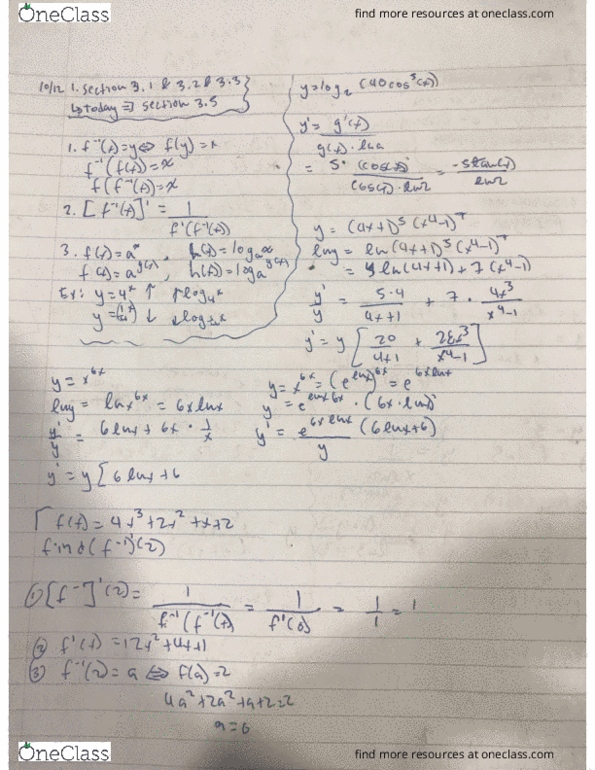 OneClass
find more resources at oneclass.com
10/12 1. section 3.1 & 3.2 & 3.3
↳ today ⇒ section 3.5
1. f⁻¹(x)=y ⇔ f(y)=x
f⁻¹(f(x))=x
f(f⁻¹(x))=x
2. [f⁻¹(x)]' = 1 / f'(f⁻¹(x))
3. f(x)=aˣ, h(x)=logₐx
f(x)=a^g(x), h(x)=logₐ^g(x)
Ex: y=4ˣ ↑ ↑log₄x
y=log₂(40cos⁵(x))
y'= g'(x) / g(x)·lna
= 5· (cos(x))' / cos(x)·ln2 = -5tan(x) / ln2
y=(4x+1)⁵(x⁴-1)⁷
lny = ln(4x+1)⁵(x⁴-1)⁷
= 5ln(4x+1)+7(x⁴-1)
y'/y = 5·4 / 4x+1 + 7· 4x³ / x⁴-1
y'=y[20 / 4x+1 + 28x³ / x⁴-1]
y=x⁶ˣ
lny = lnx⁶ˣ = 6xlnx
y'/y = 6lnx + 6x · 1/x
y'=y[6lnx+6
y=x⁶ˣ=(e^lnx)^6x = e^6xlnx
y'=e^lnx6x · (6x·lnx)'
y'= e^6xlnx (6lnx+6)
y
f(x)=4x³+2x²+x+2
find (f⁻¹)'(2)
① [f⁻]'(2)= 1 / f⁻¹(f⁻¹(x)) = 1 / f'(0) = 1/1 = 1
② f'(x)=12x²+4x+1
③ f⁻¹(2)=a ⇔ f(a)=2
4a²+2a²+a+2=2
a=0
OneClass
find more resources at oneclass.com